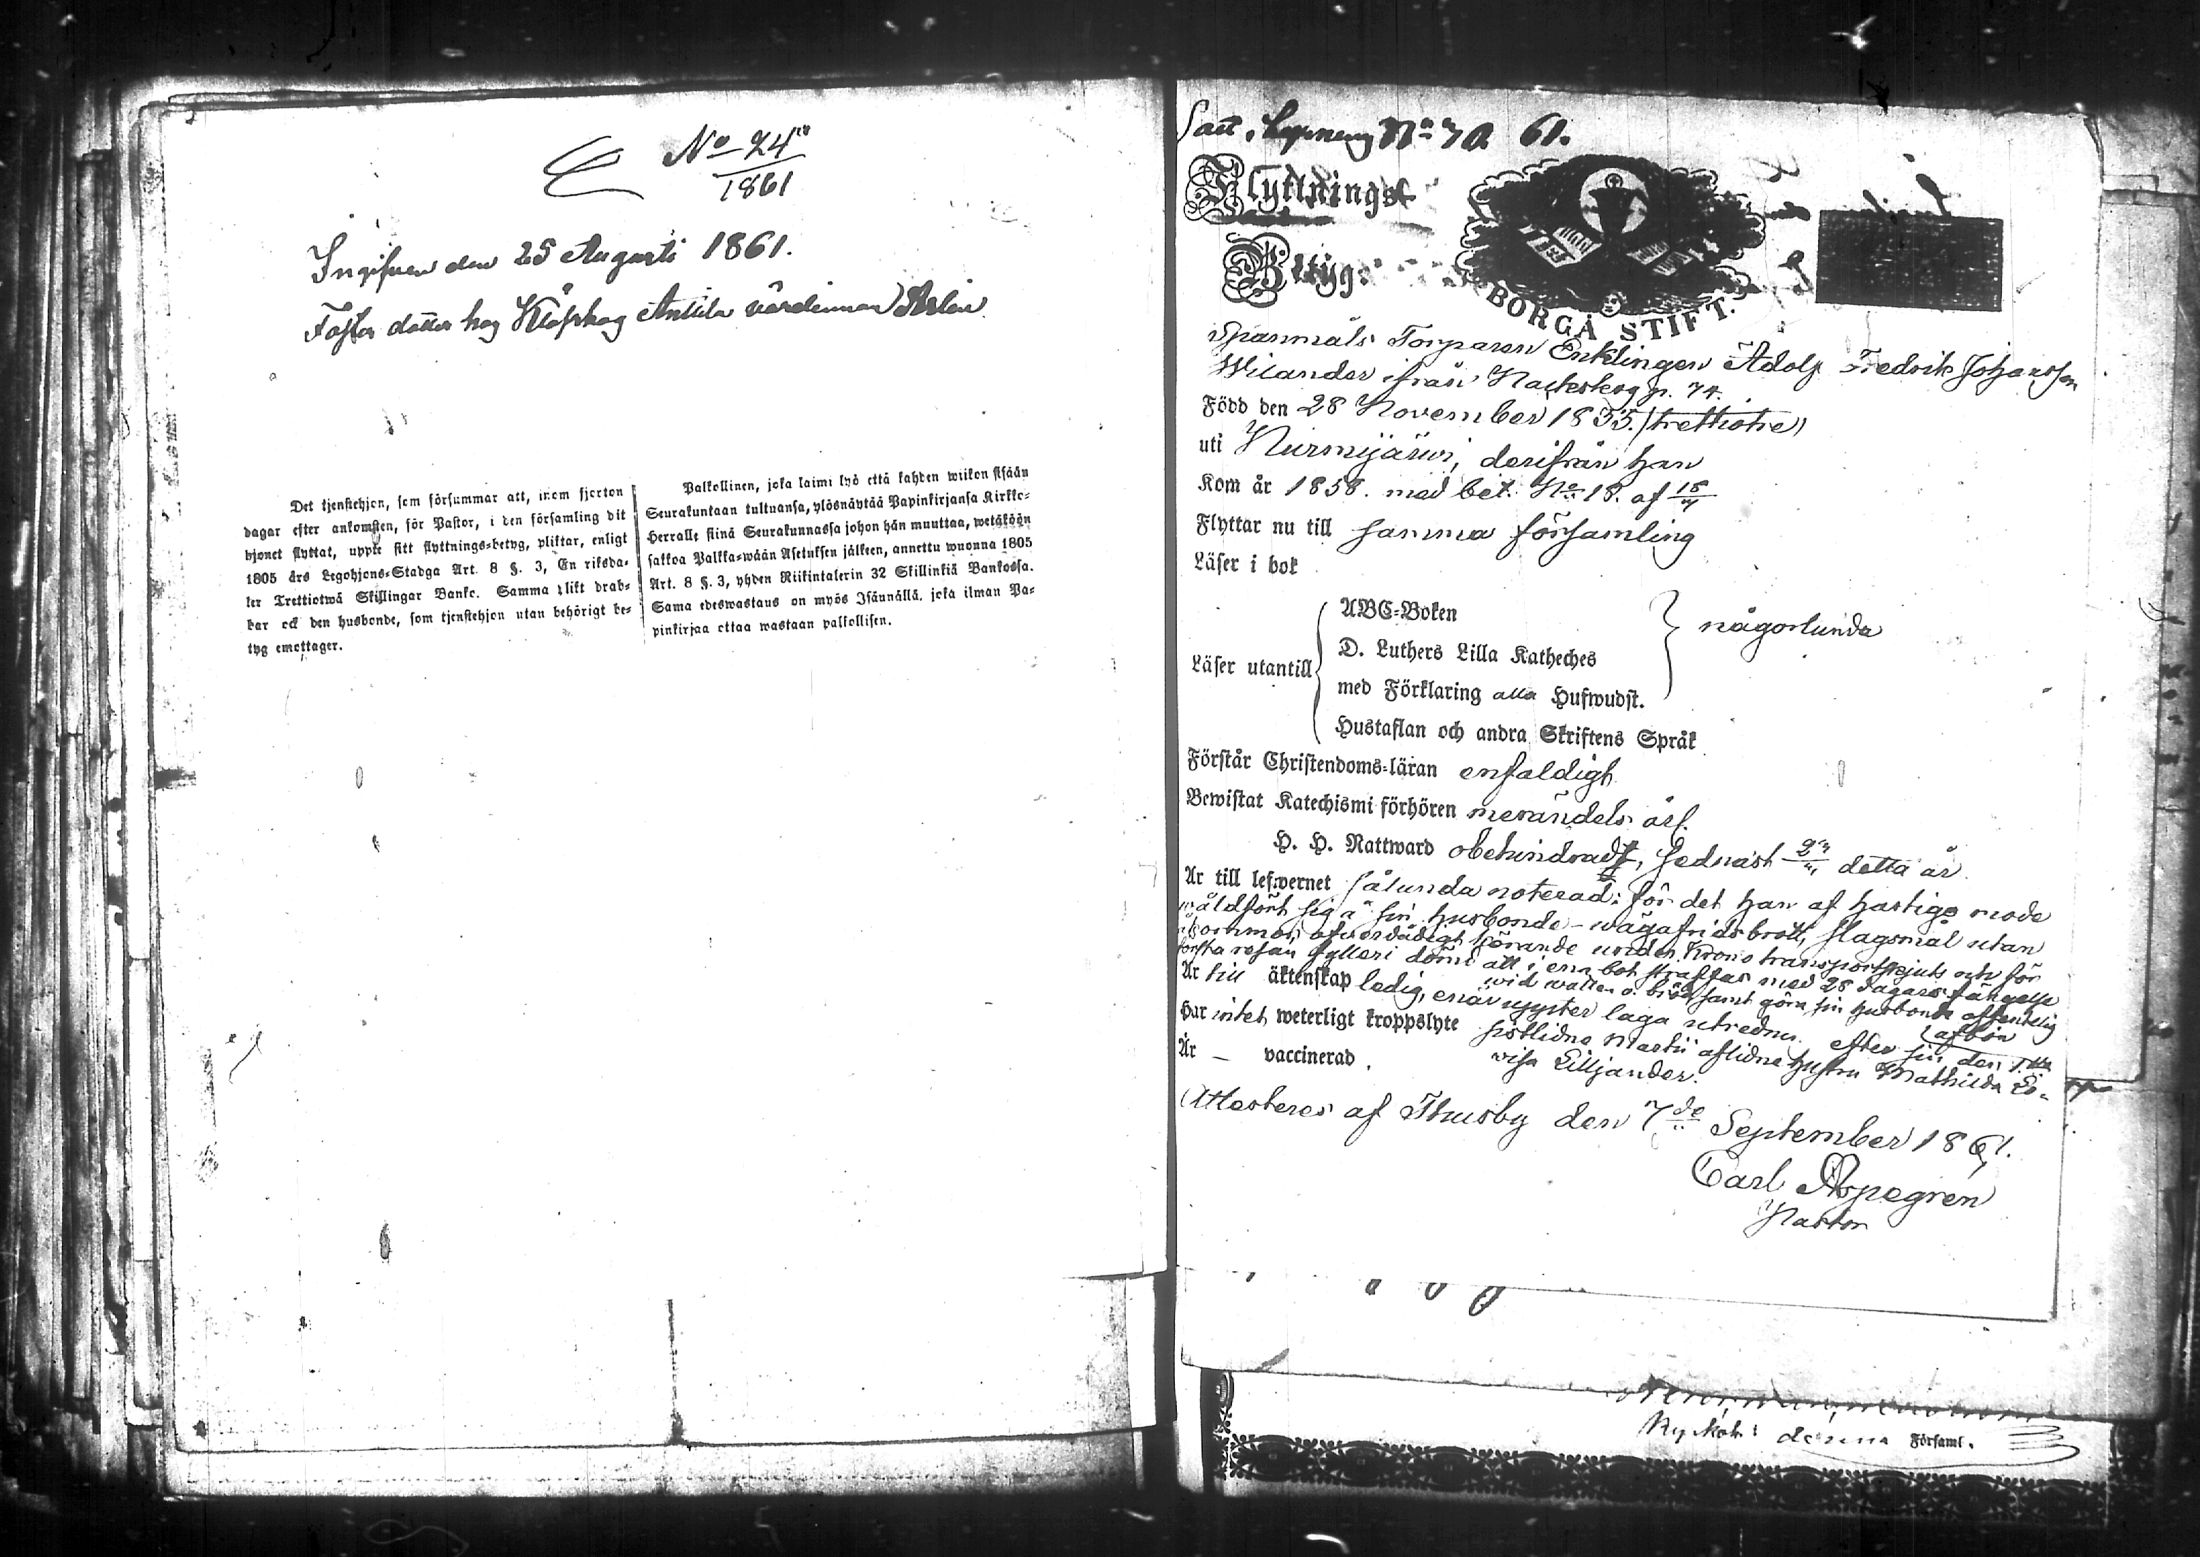 No 24
1861
Ingifven den 25 Augusti 1861.
Foster dotter hos Antila värdinnan
Det tjenstehjon, som försummar att, inom fjorton
dagar efter ankomsten, för Pastor, i den församling dit
hjonet flyttat, uppte sitt flyttnings-betyg, pliktar, enligt
1805 års Legohjons-Stadga Art. 8 §. 3, En riksda-
ler Trettiotwå Skillingar Banko. Samma plikt drab-
bar ock den husbonde, som tjenstehjon utan behörigt be-
tyg emottager.
Palkollinen, joka laimi lyö että kahden wiikon sisään
Seurakuntaan tultuansa, ylösnäyttää Papinkirjansa Kirkko-
Herralle siinä Seurakunnassa johon hän muuttaa, wetäköön
sakkoa Palkka-wään Asetuksen jälkeen, annettu wuonna 1805
Art. 8 §. 3, yhden Riikintalerin 32 Skillinkiä Bankossa.
Sama edeswastaus on myös Isännällä, joka ilman Pa-
pinkirjaa ottaa wastaan palkollisen.
No 70. 61.
Flyttnings-
Betyg:
BORGÅ STIFT.
Spanmåls Torparen Enklingen Adolf Fredrik Johansson
Wilander ifrån p. 74.
Född den 28 November 1833. (trettiotre)
uti Nurmijärvi, derifrån han
Kom år 1858. med bet. No 18. af
Flyttar nu till samma församling
Läser i bok
Läser utantill
ABC-Boken
D. Luthers Lilla Katheches
med Förklaring alla Hufwudst.
Hustaflan och andra Skriftens Språk
någorlunda
Förstår Christendoms-läran enfaldigt
Bewistat Katechismi förhören merändels årl.
H. H. Nattward obehindradt, sednast detta år.
Är till lefwernet sålunda noterad: för det han af hastigt mode
våldfört sig å sin husbonde - vägafridsbrott, slagsmål utan
öfverdådigt körande under Krono transportskjuts och för
första resan fylleri dömd att i ena bot straffas med 28 dagars fängelse
vid vatten o. bröd samt göra sin husbonde offentelig
afbön
Är till äktenskap ledig, enär uppter laga utredn. efter sin den 1sta
Har intet weterligt kroppslyte sistlidne Martii aflidne hustru Mathilda Lo-
visa Lilljander.
Är — vaccinerad.
Attesteras af Thusby den 7de September 1861.
Carl Aspegren
Pastor
denna Församl.